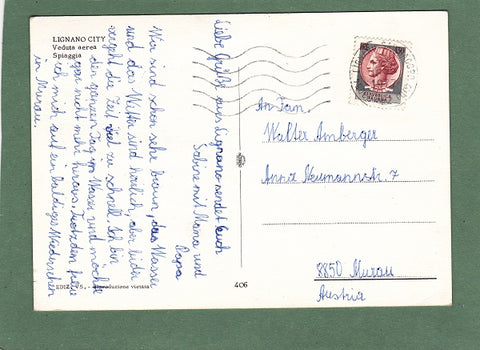 LIGNANO CITY
Veduta aerea
Spiaggia
Liebe Grüße aus Lignano sendet Euch
Sabine mit Mama und
Papa
Wir sind schon sehr braun, das Wasser
und das Wetter sind herrlich, aber leider
vergeht die Zeit viel zu schnell. Ich bin
den ganzen Tag im Wasser und möchte
gar nicht mehr heraus. Trotzdem freue
ich mich auf ein baldiges Wiedersehen
in Murau.
An Fam.
Walter Amberger
Anna Neumannstr. 7
8850 Murau
Austria
406
EDIZ. VS. - riproduzione vietata